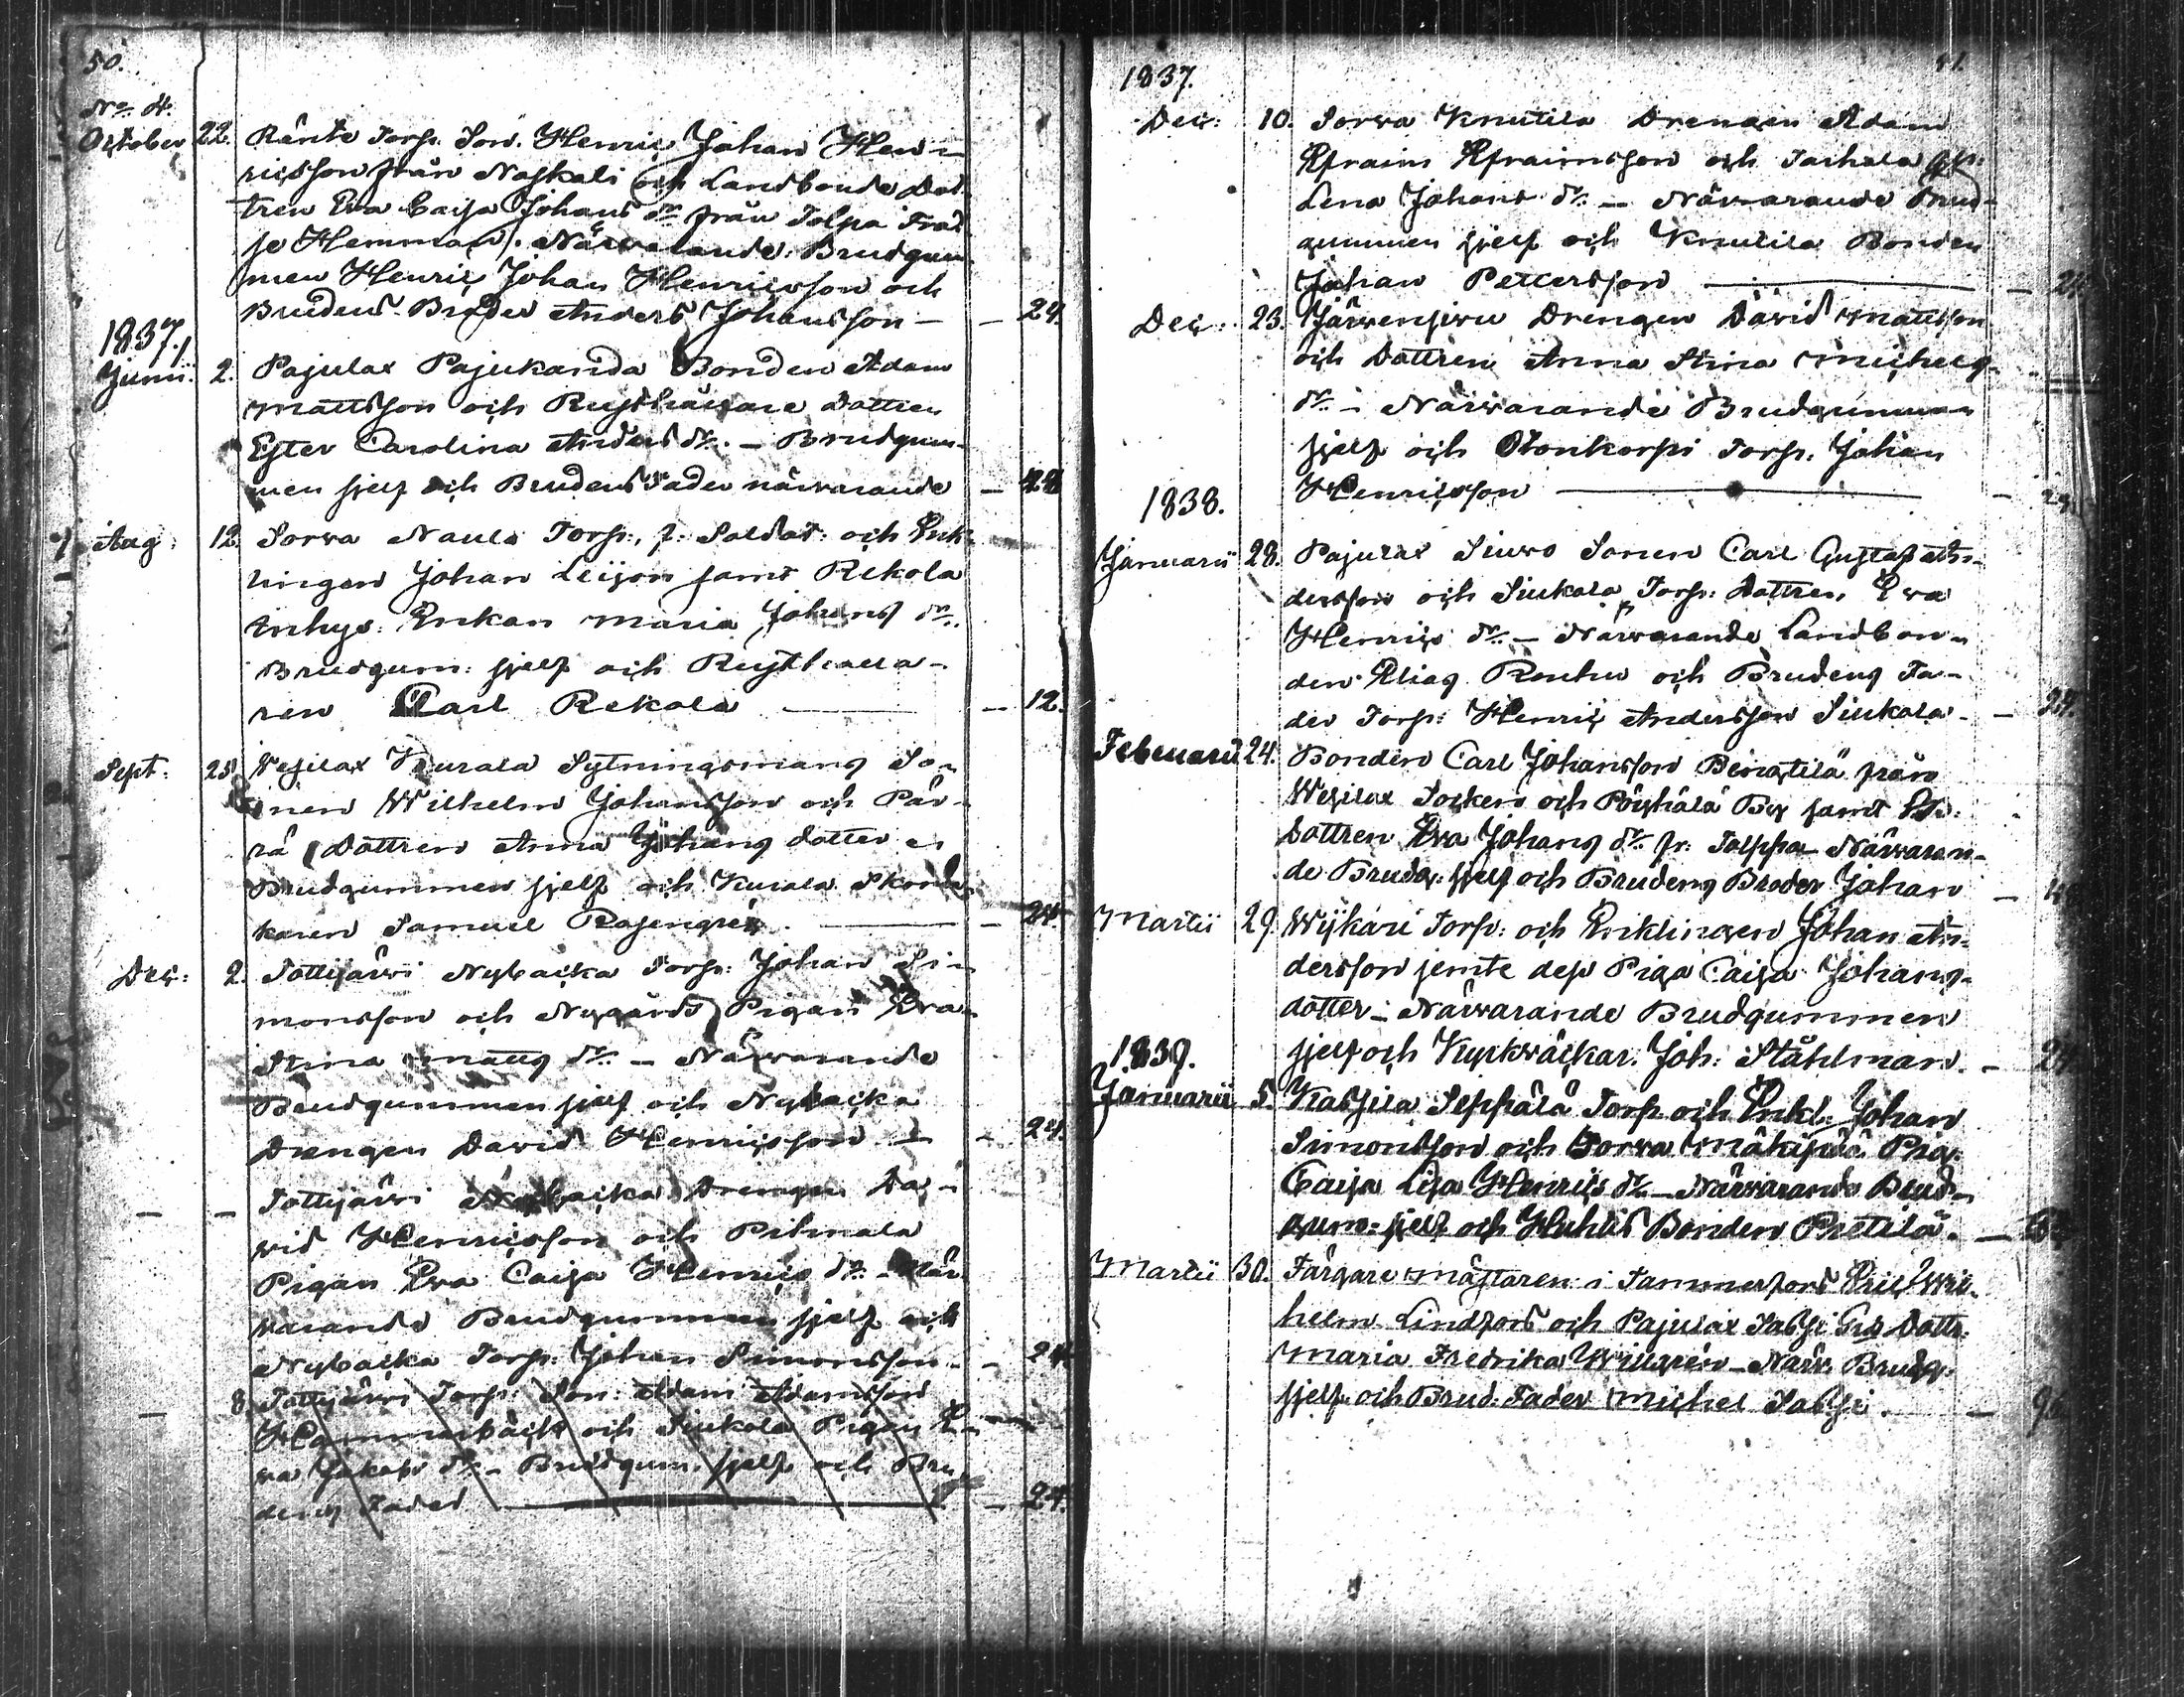 50.
No. 4.
October 22. Ränte Torp. Son. Henric Johan Hen-
ricsson från Naskali och Landbonde Dot-
tren Eva Caisa Johans dr. från Tolpa Fräl
se Hemman. Närvarande Brudgum
men Henric Johan Henricsson och
Brudens Broder Anders Johansson — — 24.
1837.
Junii. 2. Pajulax Pajukanda Bonden Adam
Mattsson och Rusthållare Dottren
Ester Carolina Anders dr. — Brudgum-
men sjelf och Brudens Fader närvarande — 24
Aug. 12. Sorva Naula Torp., f. Soldat. och Enk-
lingen Johan Leijon samt Rekola
Inhys. Enkan Maria Johans dr.
Brudgum: sjelf och Rusthålla-
ren Carl Rekola — — 12.
Sept: 25 Vesilax Kurala Sytningsmans So-
nen Wilhelm Johansson och Pär-
rä Dottren Anna Johans dotter
Brudgummen sjelf och Kurala Skorda
karen Samuel Rosengrén. — — 24.
Dec: 2. Tottijärvi Nybacka Torp: Johan Si-
monsson och Nygårds Pigan Eva
Stina Matts dr. — Närvarande
Brudgummen sjelf och Nybacka
Drengen David Henricsson — — 24.
— — Tottijärvi Nybacka Drengen Da-
vid Henricsson och Pihnala
Pigan Eva Caisa Henrics dr. — När
varande Brudgummen sjelf och
Nybacka Torp: Johan Simonsson — — 24.
— 8. Tottijärvi Torp: Son: Adam Adamsson
Hammarbäck och Siukola Pigan E-
va Jakobs dr. — Brudgum. sjelf och Bru
dens Fader — — 24.
1837. 51.
Dec: 10. Sorva Knutila Drengen Adam
Efraim Efraimsson och Taihala
Lena Johans dr. — Närvarande Brud-
gummen sjelf och Knutila Bonden
Johan Pettersson — — 24
Dec: 23. Järvensivu Drengen David Mattsson
och Dottren Anna Stina Michels
dr. — Närvarande Brudgumman
sjelf och Otonkorpi Torp. Johan
Henricsson — — 24
1838.
Januarii 28. Pajulax Siuro Sonen Carl Gustaf An-
dersson och Siukola Torp: Dottren Eva
Henrics dr. — Närvarande Landbon-
den Elias Penhu och Brudens Fa-
der Torp: Henric Andersson Siukola — — 24.
Februarii 24. Bonden Carl Johansson Benstilä från
Wesilax Socken och Pöyhälä By samt
Dottren Eva Johans dr. fr. Tolppa Närvaran-
de Brudg: sjelf och Brudens Broder Johan —
Martii 29. Wijkari Torp: och Enklingen Johan An-
dersson jemte dess Piga Caisa Johans-
dotter — Närvarande Brudgummen
sjelf och Kyrkväckar. Joh: Ståhlman. — 24
1839.
Januarii 5. Kassila Seppälä Torp och Enkl: Johan
Simonsson och Sorva Mäkipää Pig.
Caisa Lisa Henrics dr. — Närvarande Brud-
gum: sjelf och Huhtis Bonden Prettilä. —
Martii 30. Färgare Mästaren i Tammerfors Eric Wil-
helm Lindfors och Pajulax Sassi Gds Dottr:
Maria Fredrika Willgrén — Närv. Brudg:
sjelf och Brud: Fader Michel Sassi. —